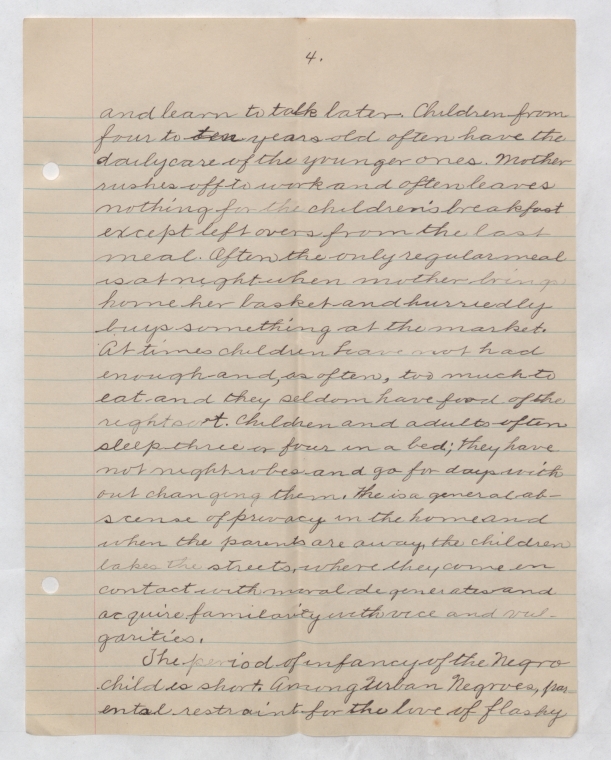 4.
and learn to talk later. Children from
four to ten years old often have the
daily care of the younger ones. Mother
rushes off to work and often leaves
nothing for the children's breakfast
except left overs from the last
meal. Often the only regular meal
is at night when mother brings
home her basket and hurriedly
buys something at the market.
At times children have not had
enough and, as often, too much to
eat and they seldom have food of the
right sort. Children and adults often
sleep three or four in a bed; they have
not night robes and go for days with
out changing them. The is a general ab-
scense of privacy in the home and
when the parents are away, the children
takes the streets, where they come in
contact with moral degenerates and
acquire familarity with vice and vul-
garities.
The period of infancy of the Negro
child is short. Among Urban Negroes, par-
ental restraint for the love of flashy